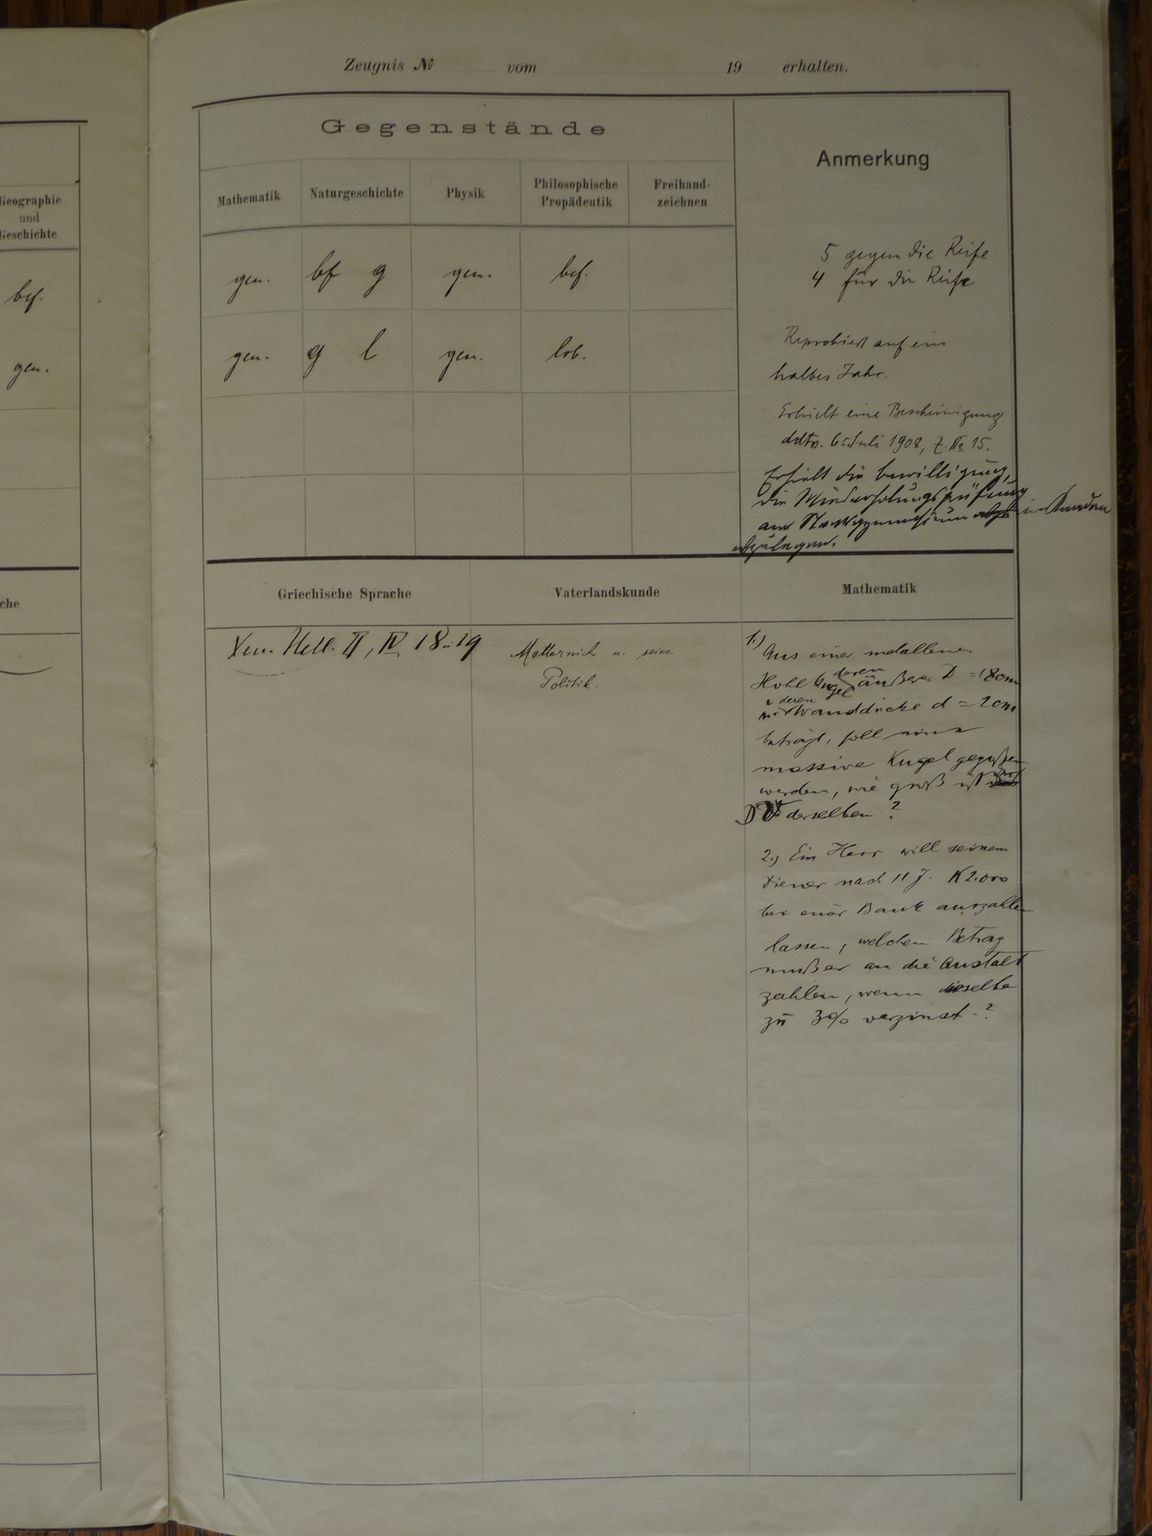 Zeugnis № vom 19 erhalten.
Gegenstände
Anmerkung
Geographie
und
Geschichte
Mathematik
Naturgeschichte
Physik
Philosophische
Propädeutik
Freihand-
zeichnen
bef.
gen.
bf g
gen.
bef.
5 gegen die Reife
4 für die Reife
gen.
gen.
g l
gen.
lob.
Reprobiert auf ein
halbes Jahr.
Erhielt eine Bescheinigung
ddto. 6 Juli 1908, Z. № 15.
Erhielt die Bewilligung,
die Wiederholungsprüfung
am in
abzulegen.
che
Griechische Sprache
Vaterlandskunde
Mathematik
Xen. Hell. II, IV, 18-19
Metternich u. seine
Politik.
1.)
Aus einer metallenen
Hohlkugel deren äußerer D = 18 cm
u deren Wanddicke d = 2 cm
beträgt, soll eine
massive Kugel gegoßen
werden, wie groß ist
D derselben?
2.) Ein Herr will seinem
Diener nach 11 J. K 2.000
bei einer Bank auszahlen
lassen, welchen Betrag
muß er an die Anstalt
zahlen, wenn dieselbe
zu 3% verzinst?